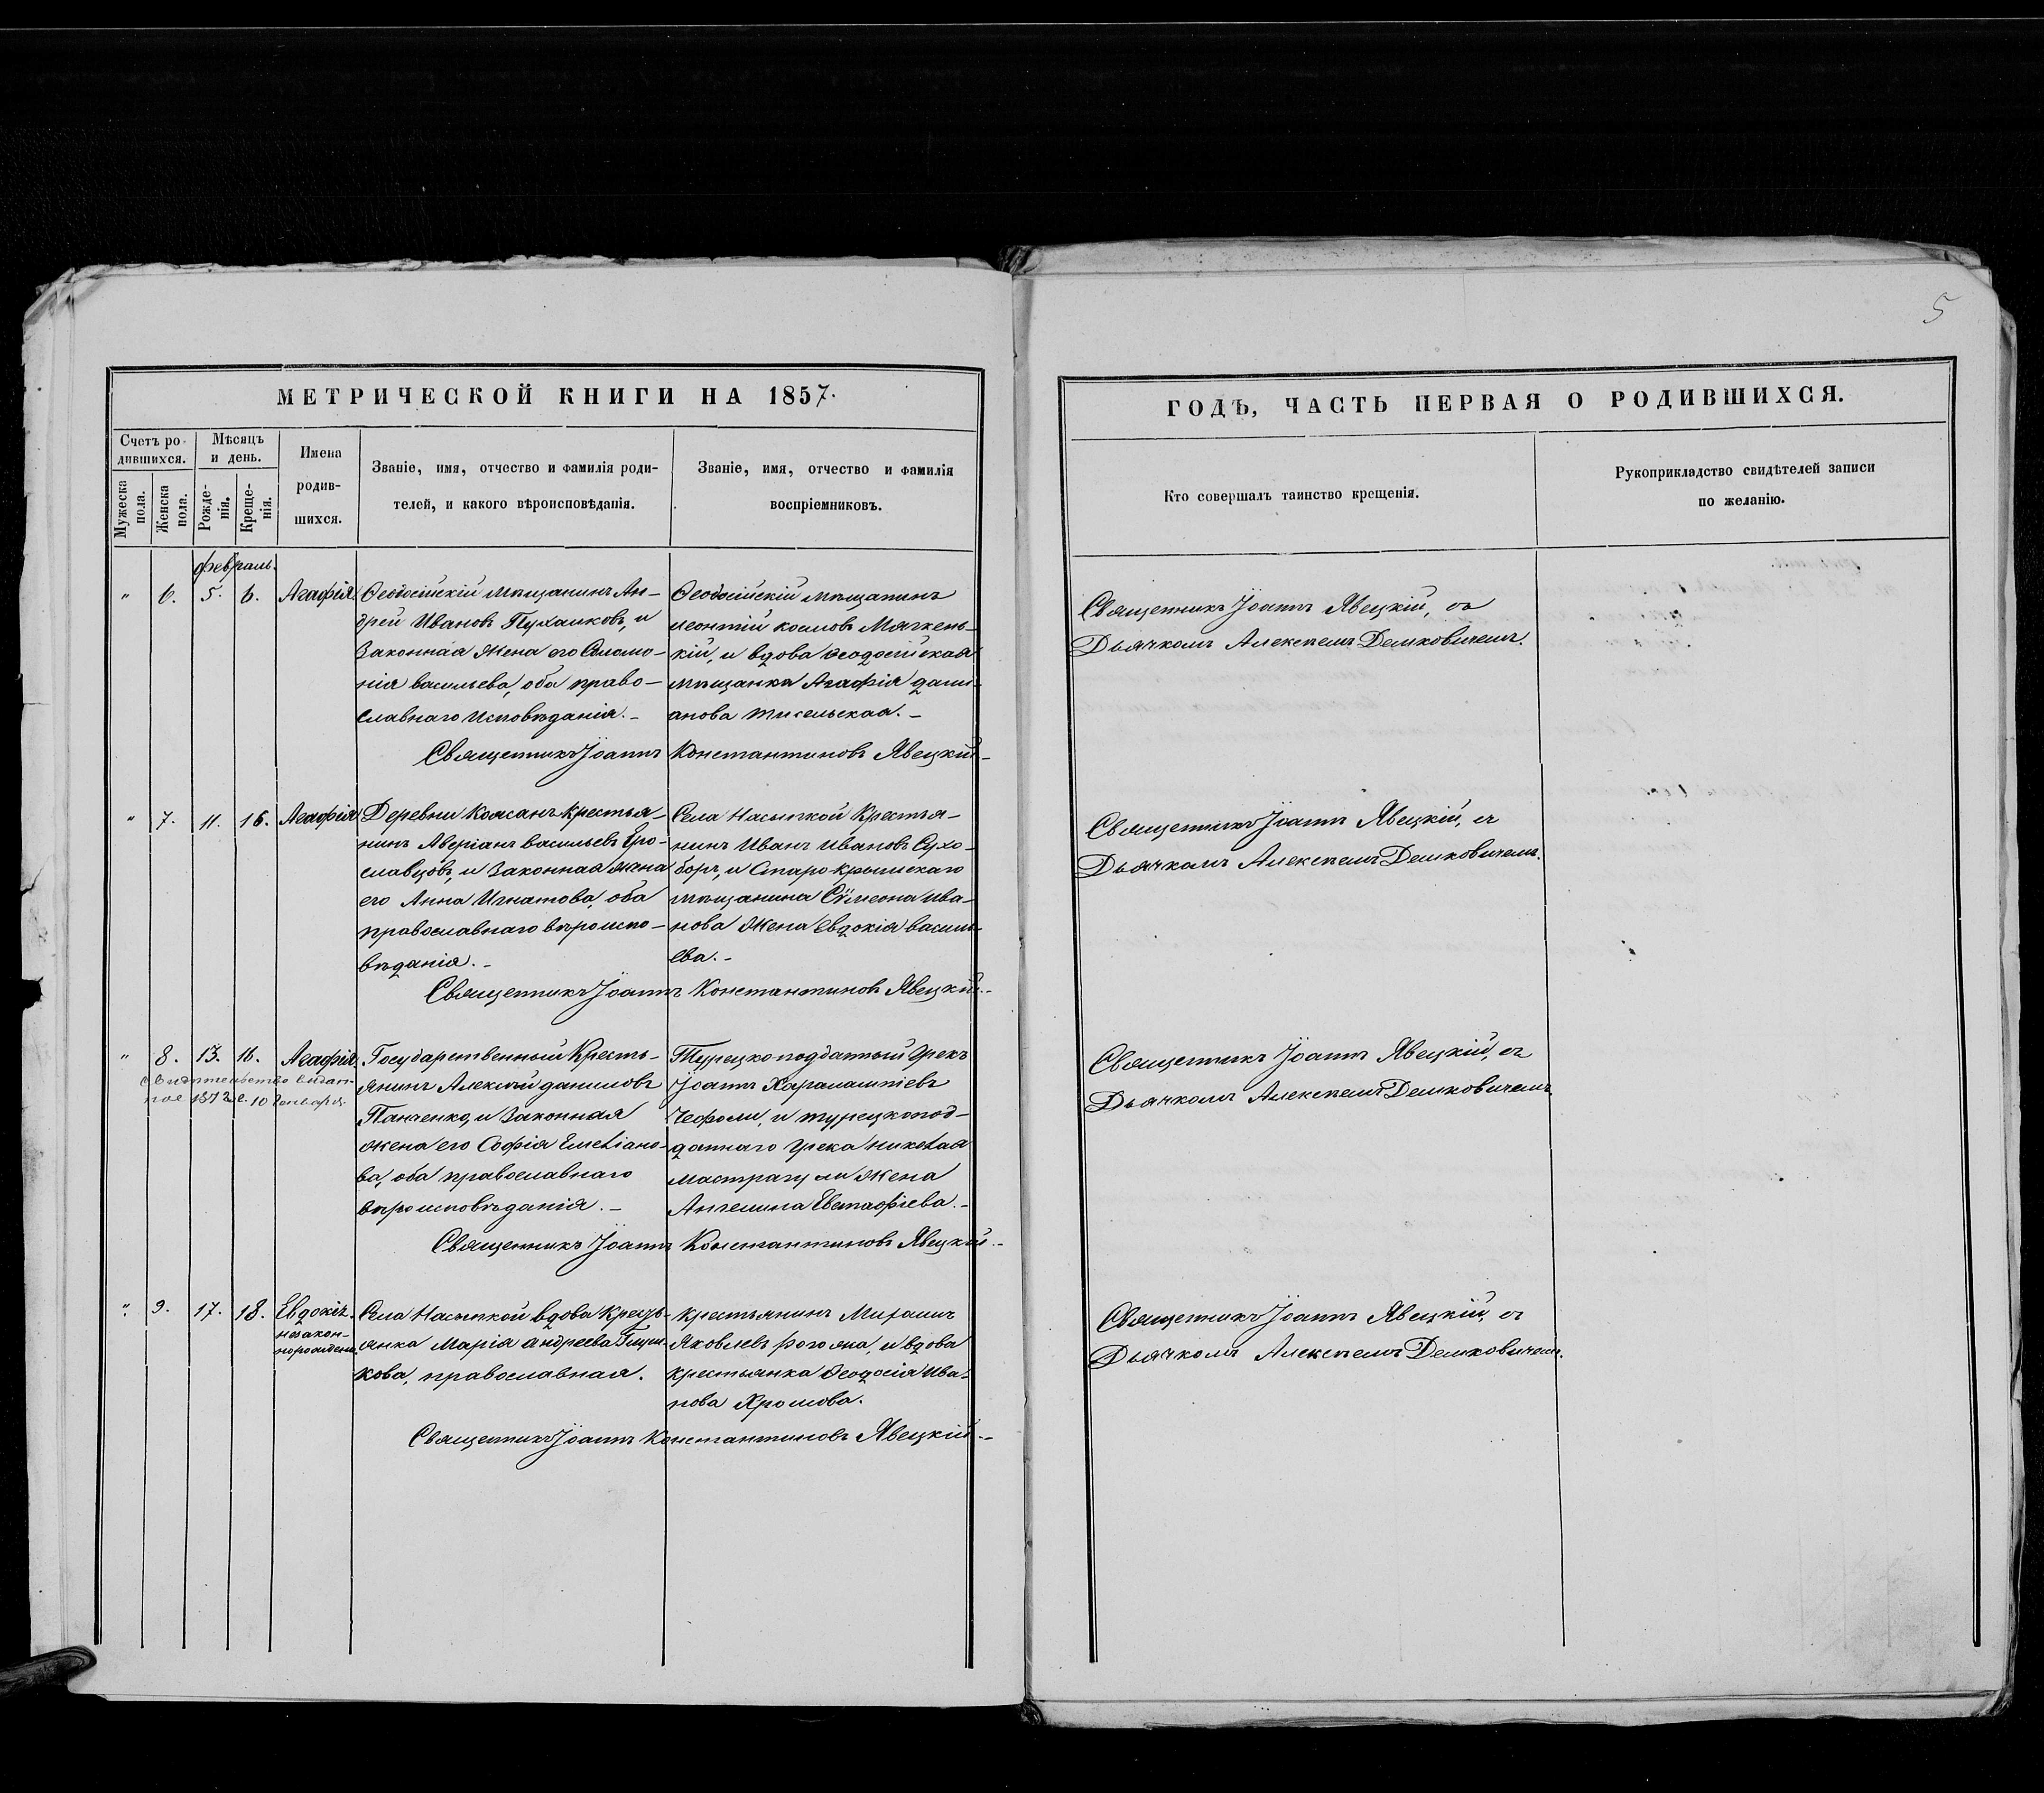 5
МЕТРИЧЕСКОЙ КНИГИ НА 1857.
ГОДЪ, ЧАСТЬ ПЕРВАЯ О РОДИВШИХСЯ.
Счетъ ро-
дившихся.
Мужеска
пола.
Женска
пола.
Мѣсяцъ
и день.
Рожде-
нія.
Креще-
нія.
Имена
родив-
шихся.
Званіе, имя, отчество и фамилія роди-
телей, и какого вѣроисповѣданія.
Званіе, имя, отчество и фамилія
воспріемниковъ.
Кто совершалъ таинство крещенія.
Рукоприкладство свидѣтелей записи
по желанію.
февраль.
" 6. 5. 6. Агафія.
Ѳеодосійскій мѣщанинъ Ан-
дрей Ивановъ Пухалковъ, и
Законная жена его Соломо-
нія васильева, оба право-
славнаго Исповѣданія.-
Ѳеодосійскій мѣщанинъ
леонтій космовъ Мягкень-
кій, и вдова ѳеодосійская
мѣщанка Агафія дами-
анова
Священникъ Іоаннъ Константиновъ Явецкій-
Священникъ Іоаннъ Явецкій, съ
Дьячкомъ Алексѣемъ Демковичемъ.
" 7. 11. 16. Агафія
Деревни Кожанъ крестья-
нинъ Аверіанъ васильевъ
и Законная жена
его Анна Игнатова, оба
православнаго вѣроиспо-
вѣданія.-
Села Насыпкой Крестья-
нинъ Иванъ Ивановъ Сухо-
боръ, и Старо-крымскаго
мѣщанина Сѵмеона ива-
нова жена Евдокія василь-
ева.-
Священникъ Іоаннъ Константиновъ Явецкій.-
Священникъ Іоаннъ Явецкій, съ
Дьячкомъ Алексѣемъ Демковичемъ.
" 8. 13. 16. Агафія.
Свидѣтельство выдан-
ное 1873 г. 10 Генваря.
Государственный Кресть-
янинъ Алексѣй даниловъ
Панченко, и Законная
жена его Софія Емеліано-
ва, оба православнаго
вѣроисповѣданія.-
Турецкоподданный Грекъ
Іоаннъ Харалампіевъ
Чефоли, и турецкопод-
даннаго Грека николая
жена
Ангелина Евстафіева.-
Священникъ Іоаннъ Константиновъ Явецкій.-
Священникъ Іоаннъ Явецкій, съ
Дьячкомъ Алексѣемъ Демковичемъ.
" 9. 17. 18. Евдокія.
незакон-
норожден.
Села Насыпкой вдова Кресть-
янка Марія андреева
кова, православная.
крестьянинъ Михаилъ
Яковлевъ и вдова
крестьянка Ѳеодосія Ива-
нова Хромова.
Священникъ Іоаннъ Константиновъ Явецкій.-
Священникъ Іоаннъ Явецкій, съ
Дьячкомъ Алексѣемъ Демковичемъ.